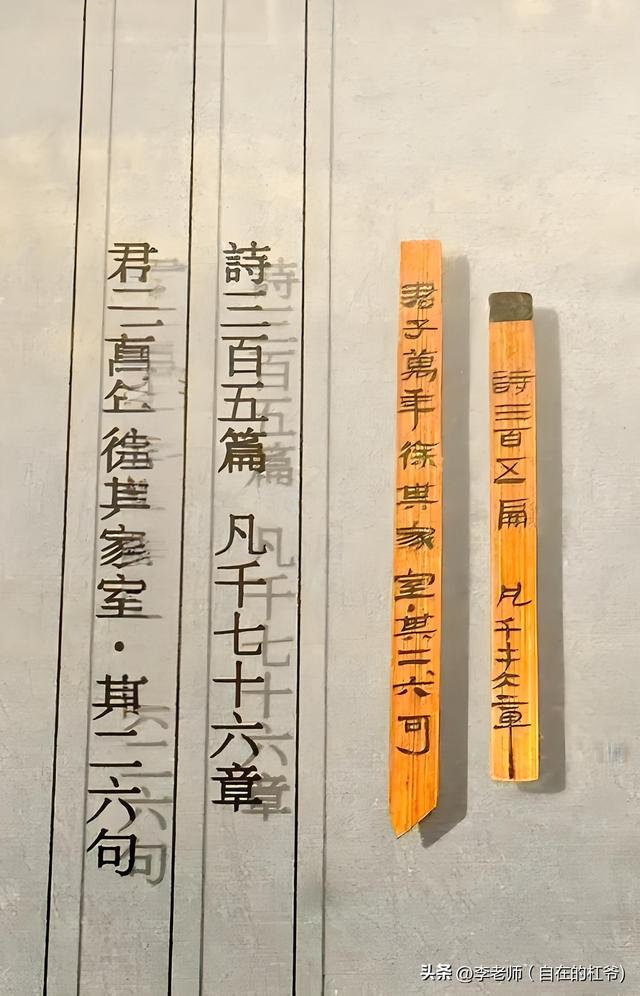 詩三百五扁 凡千七十六章
君子萬年其家室·其二六句
詩三百五篇 凡千七十六章
君其家室·其二六句
头条 @李老师（自在的杠爷)